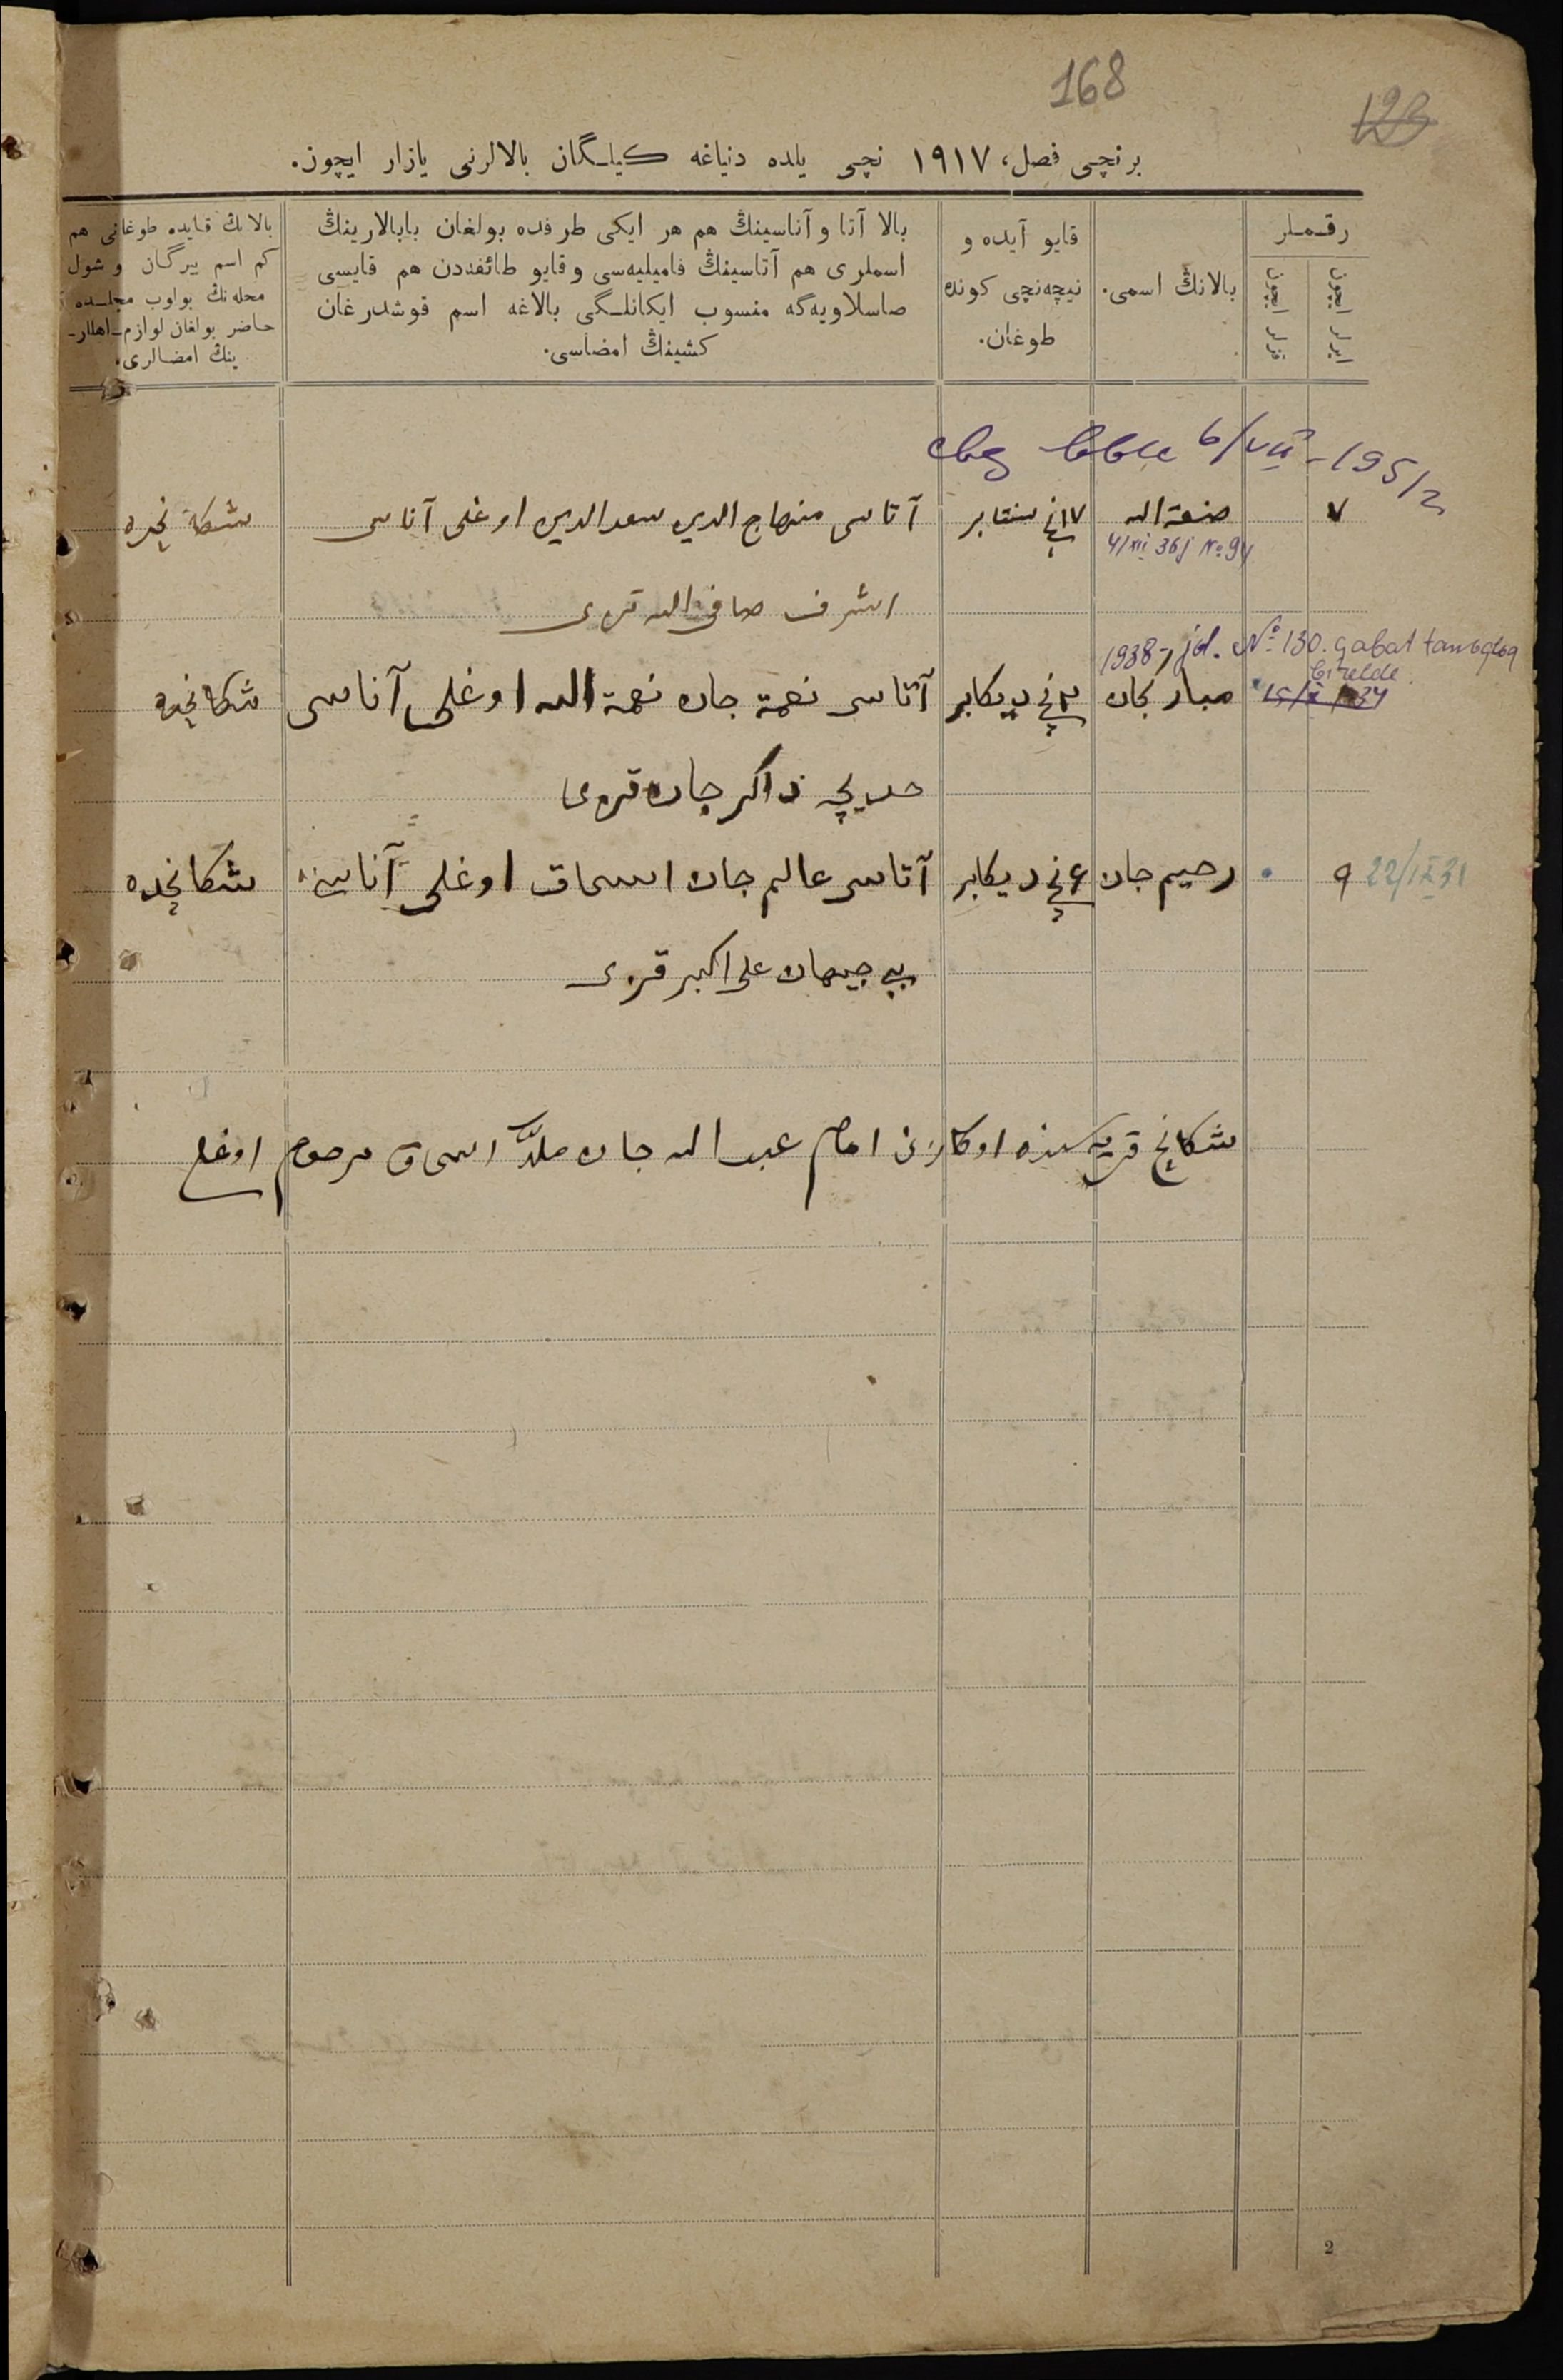 168
123
برنچی فصل، ١٩١٧ نچی یلده دنیاغه كیلـگان بالالرنی یازار ایچون.
رقـمـلر
ایرلر ایچون
قزلر ایچون
بالانڭ اسمی.
قایو آیده و
نیچه‌نچی كونده
طوغان.
بالا آتا و آناسینڭ هم هر ایكی طرفده بولغان بابالارینڭ
اسملری هم آتاسینڭ فامیلیه‌سی و قایو طائفه‌دن هم قایسی
صاسلاویه‌گه منسوب ایكانلـگی بالاغه اسم قوشدرغان
كشینڭ امضاسی.
بالانڭ قایده طوغانی هم
كم اسم بیرگان و شول
محله‌نڭ بولوب مجلسده
حاضر بولغان لوازم اهللر-
ینڭ امضالری.
6/VII-1951
٧ صنعة الله ١٧نچی سنتابر آتاسی منهاج الدین سعد الدین اوغلی آناسی شكانچده
4/XII 36j №94
اشرف صافی الله قزی
1938-jel. № 130. qabat tanьqlьq
birelde
15/X 34
مبارکجان ٣نچی دیكابر آتاسی نعمة جان نعمة الله اوغلی آناسی شكانچده
خدیچه ذاکر جان قزی
٩ 22/IX 31 رحیم جان ٤نچی دیكابر آتاسی عالم جان اسحاق اوغلی آناسی شكانچده
بی جیهان علی اكبر قزی
شكانچ قریه سنده اوكازنی امام عبد الله جان ملا اسحاق مرحوم اوغلی
2